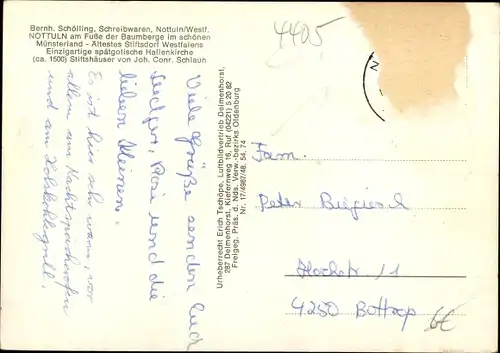 Bernh. Schölling, Schreibwaren, Nottuln/Westf.
NOTTULN am Fuße der Baumberge im schönen
Münsterland - Ältestes Stiftsdorf Westfalens
Einzigartige spätgotische Hallenkirche
(ca. 1500) Stiftshäuser von Joh. Conr. Schlaun
4405
N
Viele Grüße senden Euch
Rosi und die
lieben Kleinen.
Es ist hier sehr warm, vor
allem im
und am Holzkohlegrill.
Urheberrecht Erich Tschöpe, Luftbildvertrieb Delmenhorst,
287 Delmenhorst, Kiefernweg 16, Ruf (04221) 5 20 82
Freigeg. Präs. d. Nds. Verw.-bezirks Oldenburg
Nr. 17/4967/48, 54, 74
Fam.
Peter
11
4250 Bottrop
6€